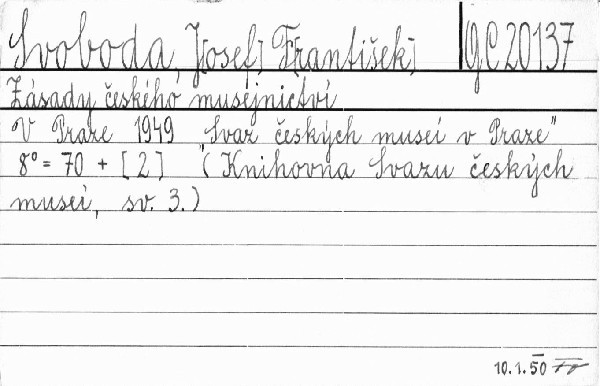 Svoboda, J[osef] F[rantišek] GC 20137
Zásady českého musejnictví
V Praze 1949 Svaz českých museí v Praze"
8° = 70 + [2] "(Knihovna Svazu českých
museí, sv. 3.)
10.1.50